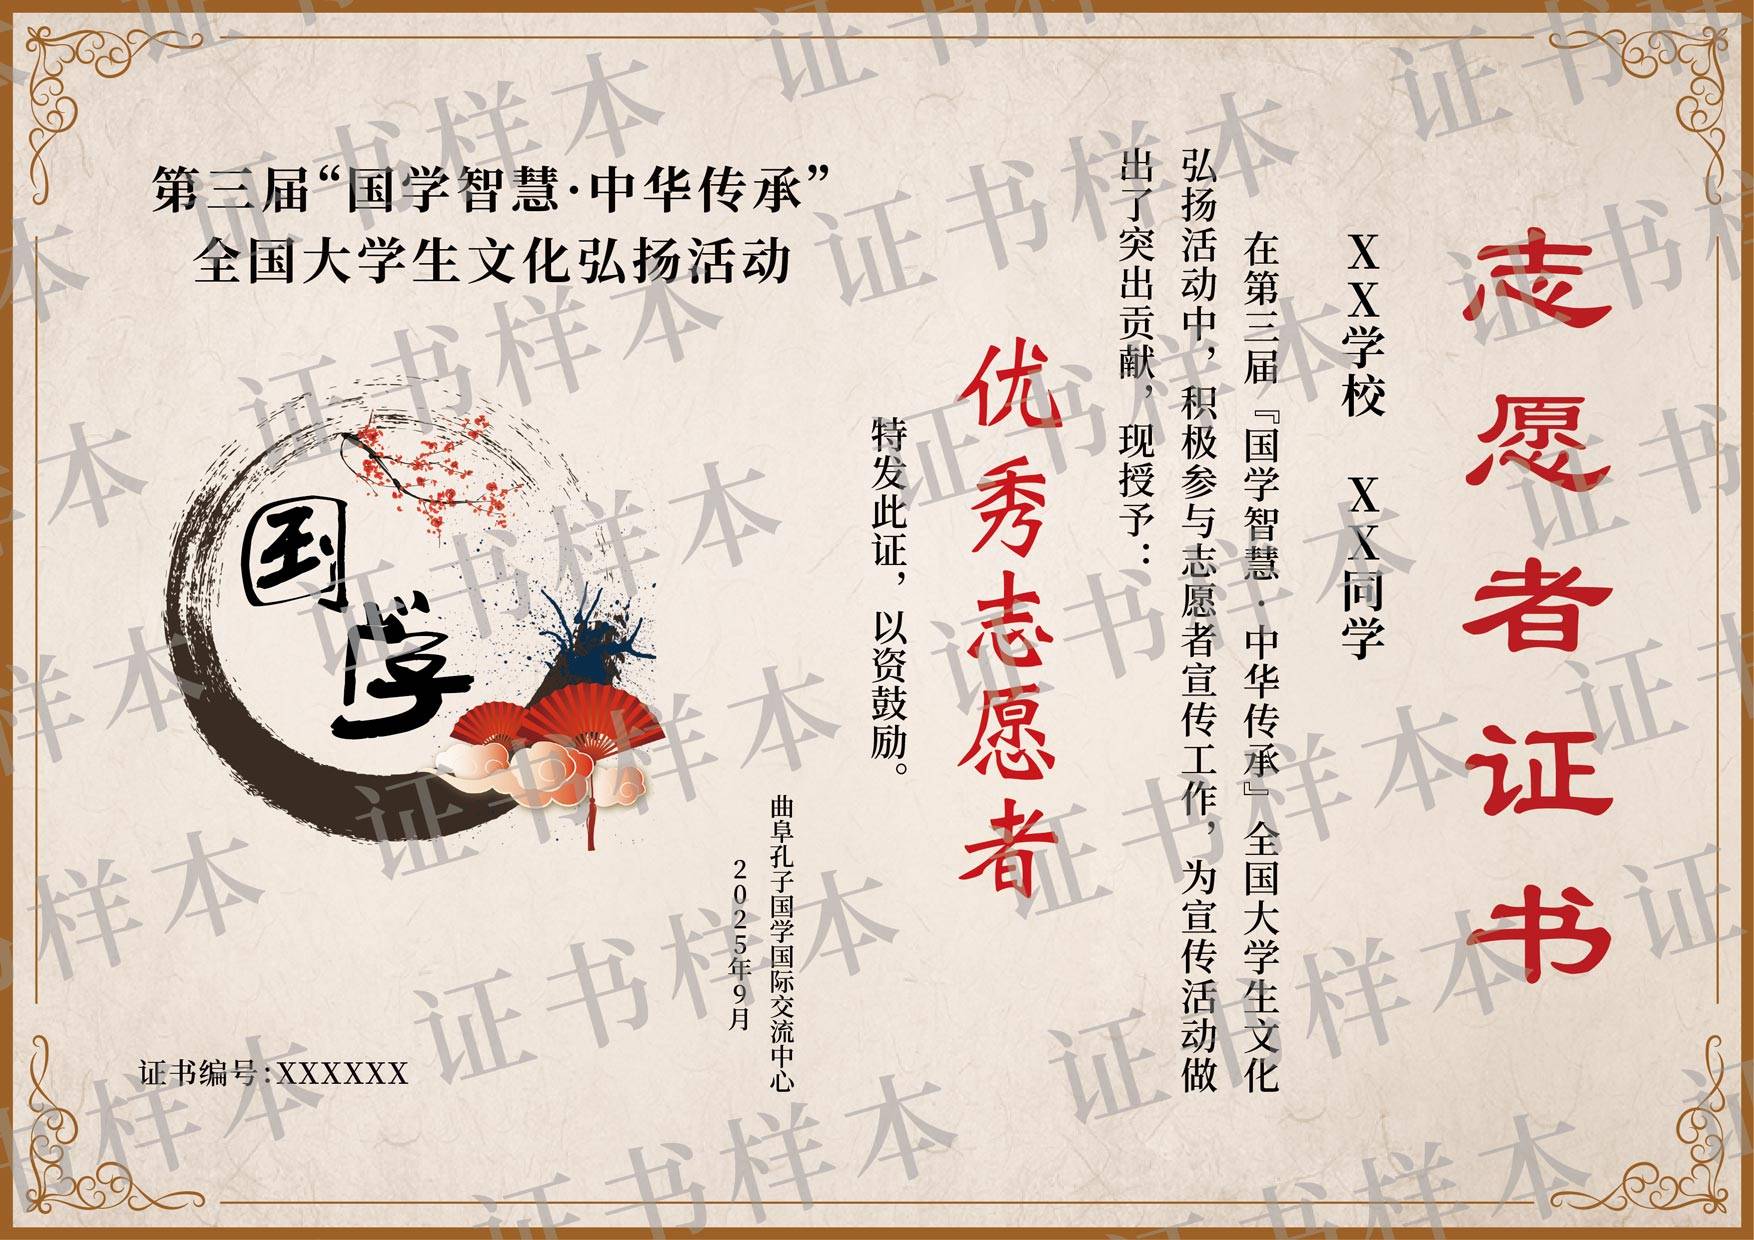 志愿者证书
XX学校 XX同学
在第三届『国学智慧·中华传承』全国大学生文化
弘扬活动中，积极参与志愿者宣传工作，为宣传活动做
出了突出贡献，现授予：
优秀志愿者
特发此证，以资鼓励。
曲阜孔子国学国际交流中心
2025年9月
第三届“国学智慧·中华传承”
全国大学生文化弘扬活动
国学
证书编号:XXXXXX
证书样本